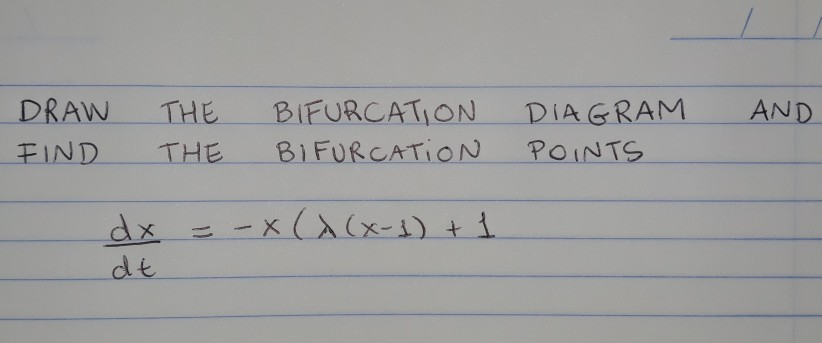 DRAW THE BIFURCATION DIAGRAM AND
FIND THE BIFURCATION POINTS
dx/dt = -x(λ(x-1) + 1